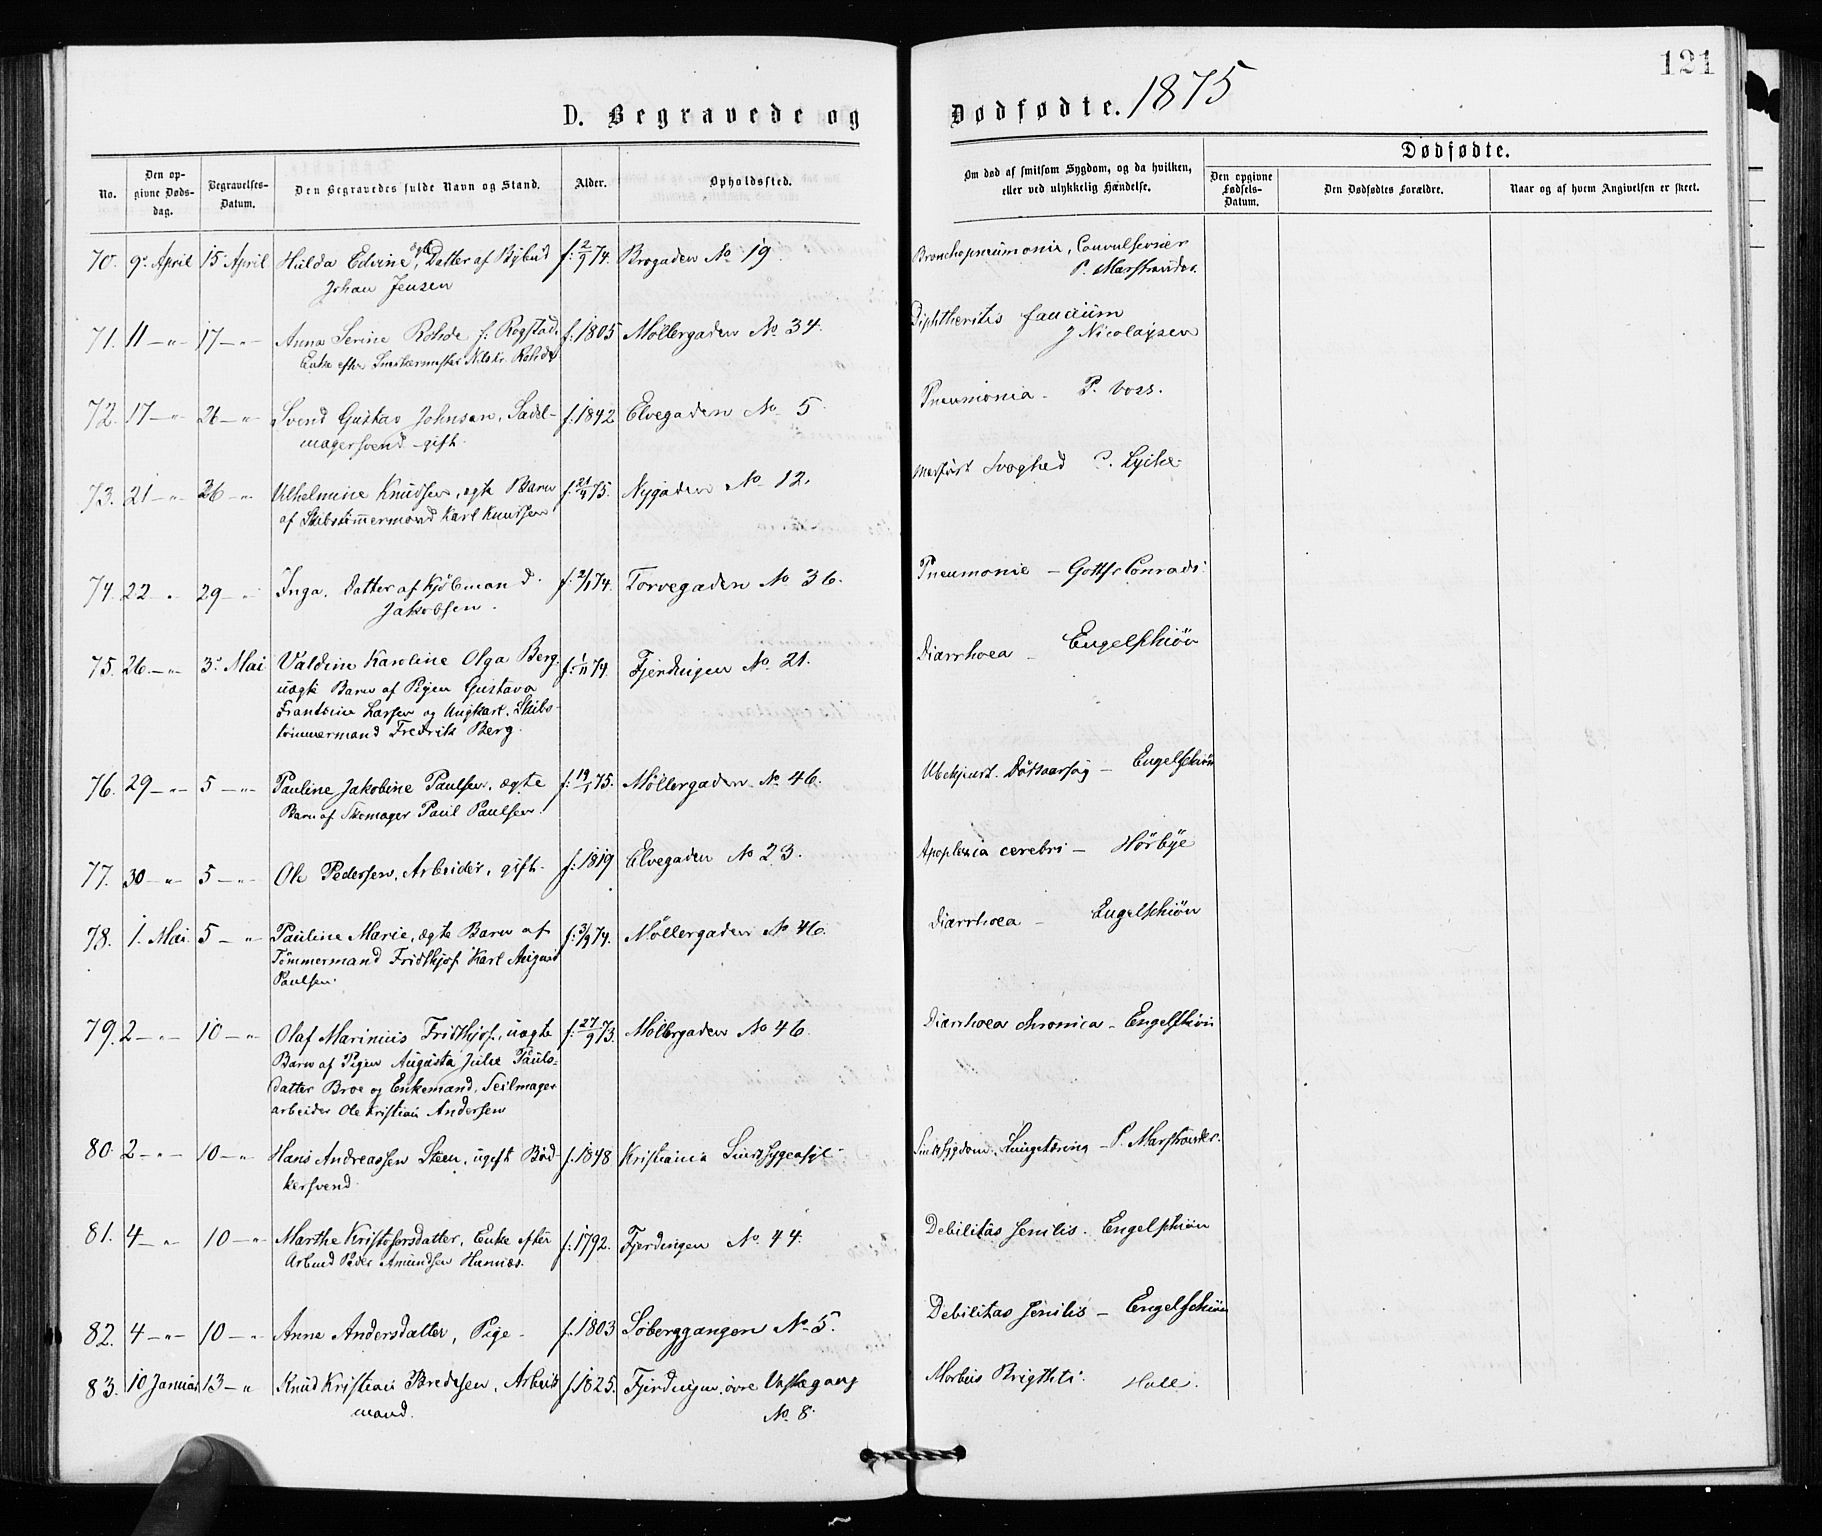 121
D. Begravede og Dødfødte. 1875
No.
Den opgivne Dødsdag.
Begravelses-Datum.
Den Begravedes fulde Navn og Stand.
Alder.
Opholdssted.
Om død af smitsom Sygdom, og da hvilken, eller ved ulykkelig Hændelse.
Dødfødte.
Den opgivne Fødsels-Datum.
Den Dødfødtes Forældre.
Naar og af hvem Angivelsen er skeet.
70. 9. April 15 April Hulda Edvine, ægte Datter af Bybud f. 2/9 74. Brogaden No 19. Bronchopneumonia, Convulsioner
Johan Jensen P. Marstrander
71. 11 — " — 17 — " — Anna Serine Rohde f. Rogstad f. 1805 Møllergaden No 34. Diphtheritis faucium
Enke efter Snedkermester Rohde J Nicolaysen
72. 17 — " 26 — " Svend Gustav Johnsen, Sadel- f. 1842 Elvegaden No 5 Pneumonia - P. Voss.
magersvend gift.
73. 21 — " 26 — " Vilhelmine Knudsen, ægte Barn f. 21/4 75. Nygaden No 12. Medfødt Svaghed
af Skibstømmermand Karl Knudsen
74. 22 " 29 — " Inga, Datter af Kjøbmand f. 2/1 74. Torvegaden No 36. Pneumonie — Gottfr Conradi
Jakobsen.
75. 26 — " — 3. Mai Valdine Karoline Olga Berg f. 1/11 74. Fjerdingen No 21. Diarrhoea — Engelschiøn
uægte Barn af Pigen Gustava
Frantsine Larsen og Ungkarl, Skibs-
tømmermand Fredrik Berg.
76. 29 — " — 5 — " Pauline Jakobine Paulsen, ægte f. 19/1 75. Møllergaden No 46. Ubekjendt Dødsaarsag — Engelschiøn
Barn af Skomager Paul Paulsen.
77. 30 — " — 5 — " Ole Pedersen, Arbeider, gift. f. 1819 Elvegaden No 23. Apoplexia cerebri — Hørbye
78. 1. Mai 5 — " Pauline Marie, ægte Barn af f. 3/9 74. Møllergaden No 46. Diarrhoea — Engelschiøn
Tømmermand Fridthjof Karl August
Paulsen.
79. 2 — " 10 — " Olaf Marinius Fridthjof, uægte f. 27/9 73. Møllergaden No 46. Diarrhoea chronica — Engelschiøn
Barn af Pigen Augusta Julie Pauls-
datter Broe og Enkemand, Seilmager
arbeider Ole Kristian Andersen
80. 2 — " 10 — " Hans Andreassen Steen, ugift Bød- f. 1848 Kristiania Sindssygeasyl Sindssygdom, Lungetæring — P. Marstrander.
kersvend
81. 4 — " 10 — " Marthe Kristofersdatter, Enke efter f. 1792. Fjerdingen No 44. Debilitas senilis. Engelschiøn
Arbmd Peder Amundsen
82. 4 — " — 10 — " Anne Andersdatter, Pige f. 1803 Søberggangen No 5. Debilitas senilis — Engelschiøn
83. 10 Januar 13 — " Knud Kristian Bredesen, Arbeids f. 1825. Fjerdingen, øvre Vaskegang Morbus Brigthti. Hall.
mand. No 8.